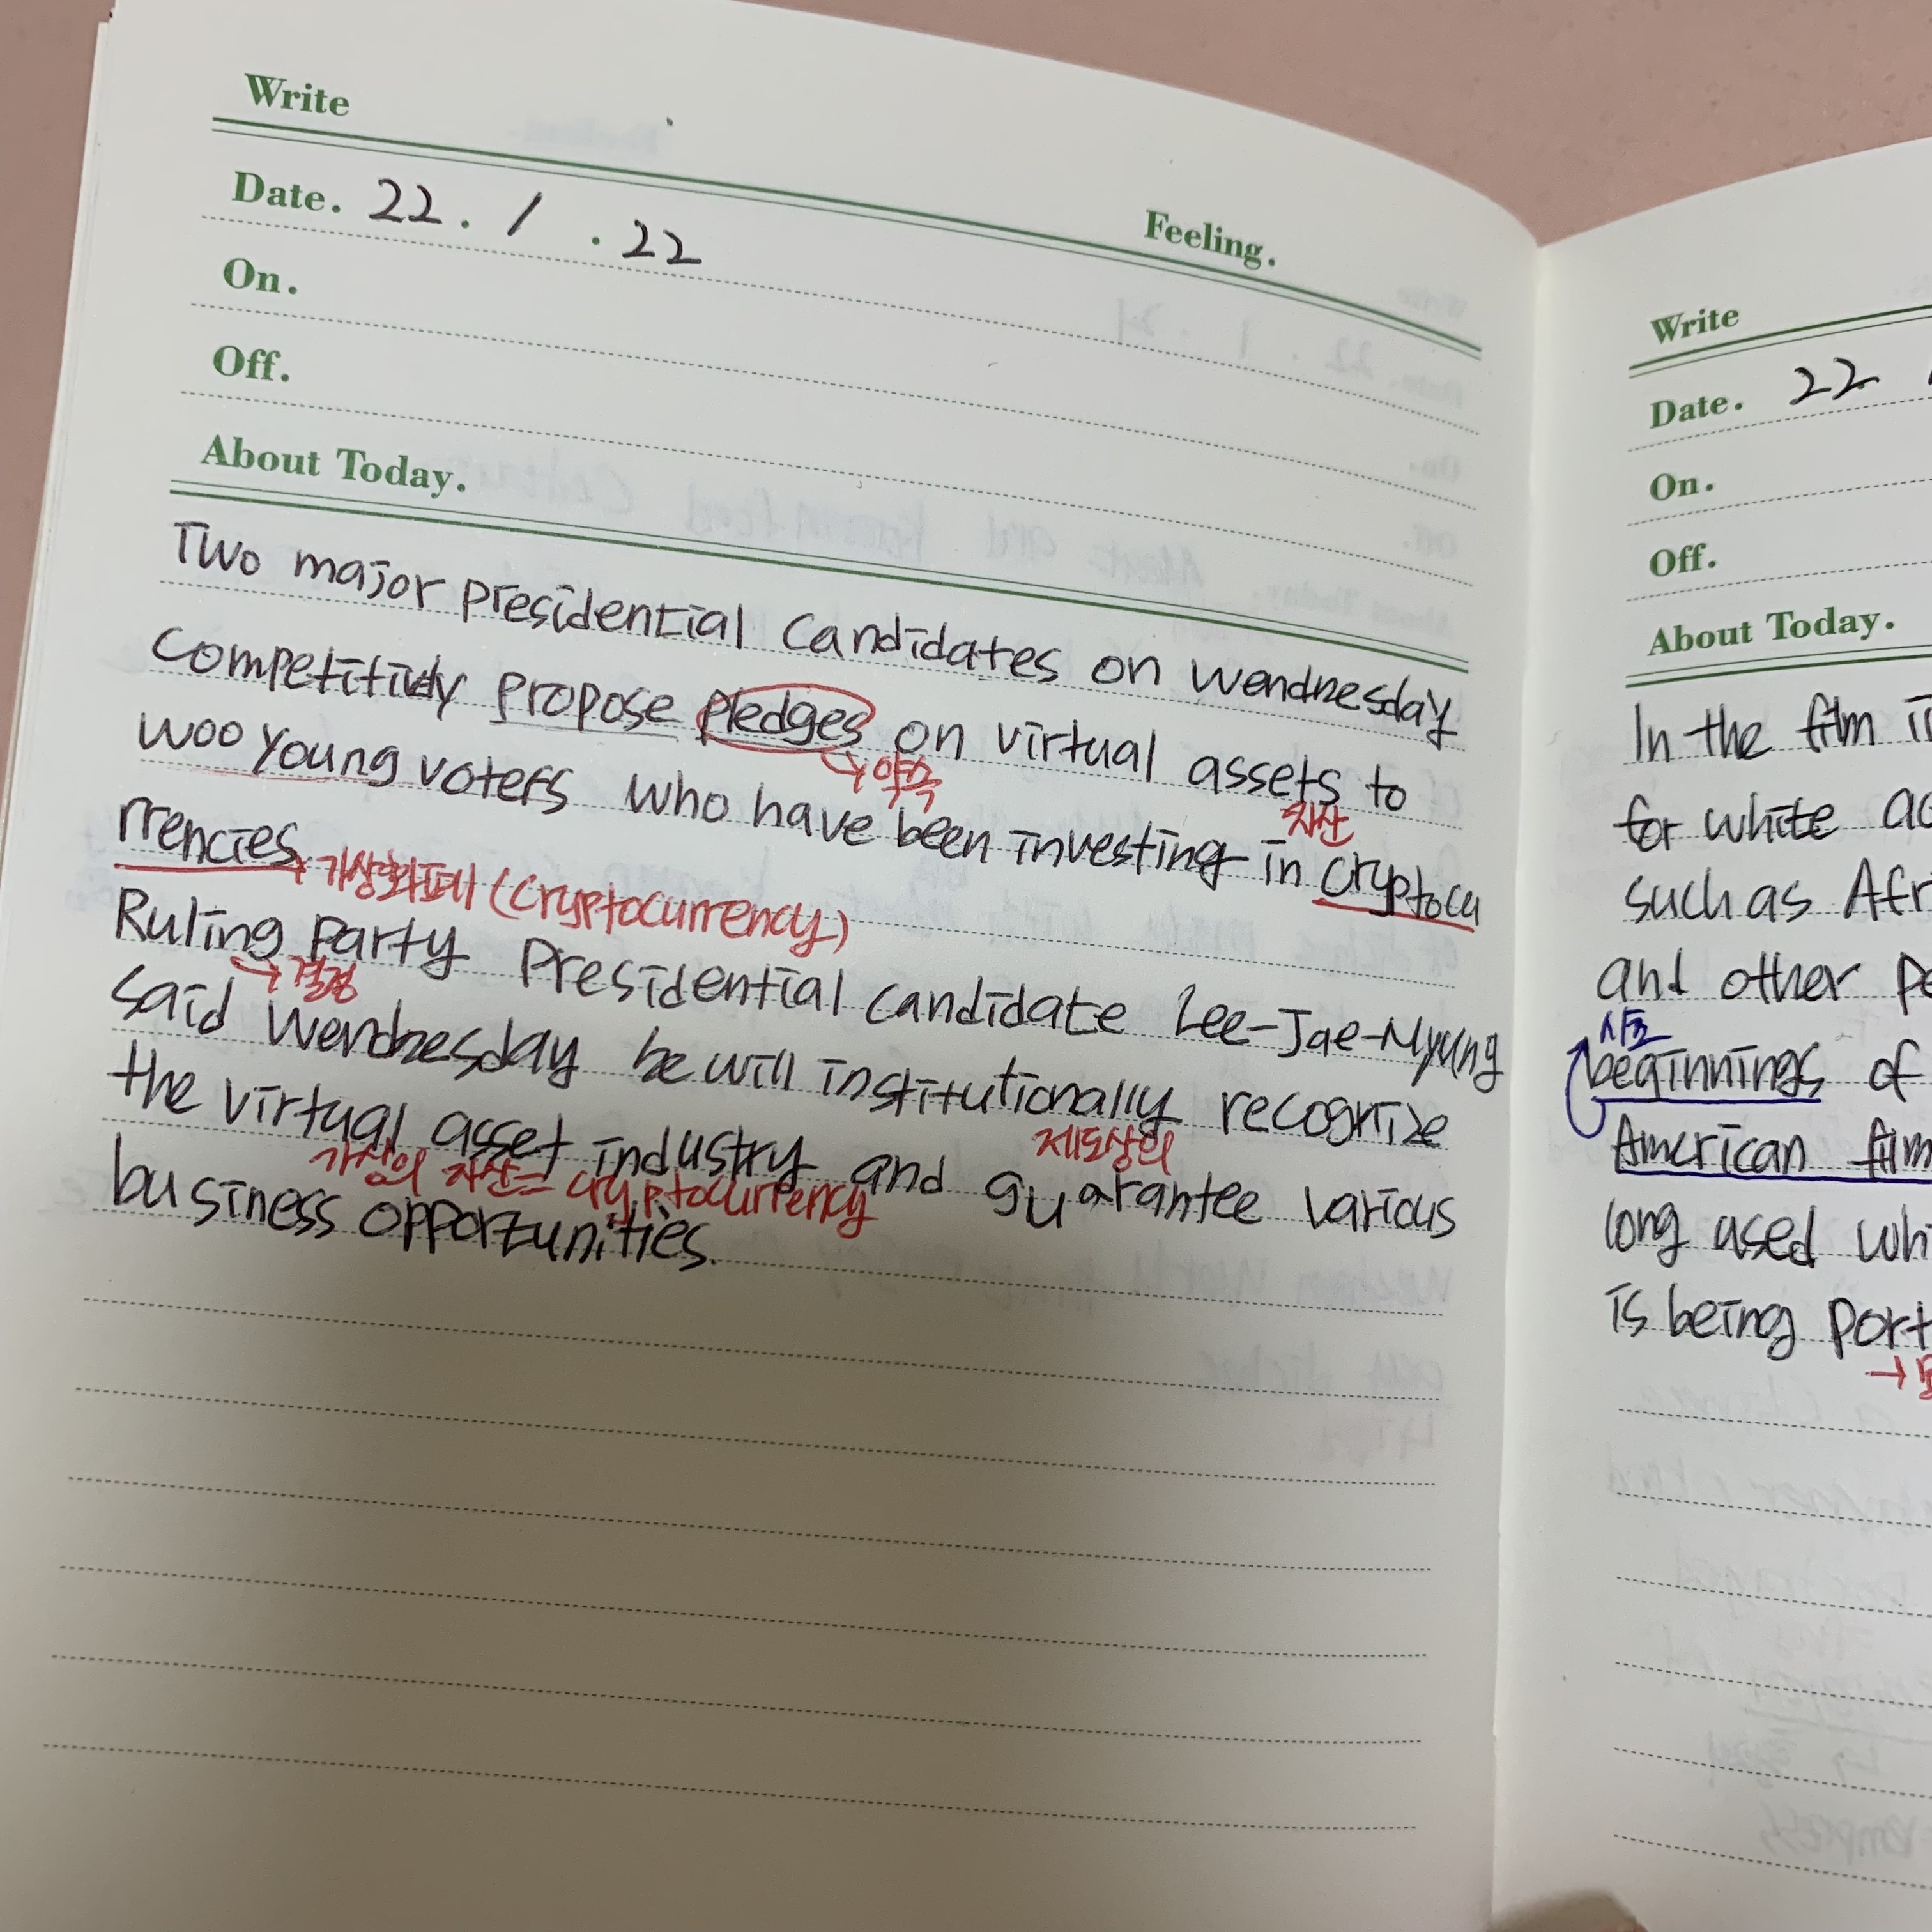 Write
Feeling.
Date. 22. / . 22
On.
Off.
About Today.
Two major presidential candidates on wendnesday
competitively propose pledges on virtual assets to
→ 약속
자산
woo young voters who have been investing in cryptocu
rrencies
→ 가상화폐 (cryptocurrency)
Ruling party presidential candidate Lee-Jae-Myung
→ 결정
said wendnesday he will institutionally recognize
제도상의
the virtual asset industry and guarantee various
가상의 자산 = cryptocurrency
business opportunities.
Write
Date. 22
On.
Off.
About Today.
In the film
for white
such as
and other
시초
beginnings of
American film
long used
is being
→